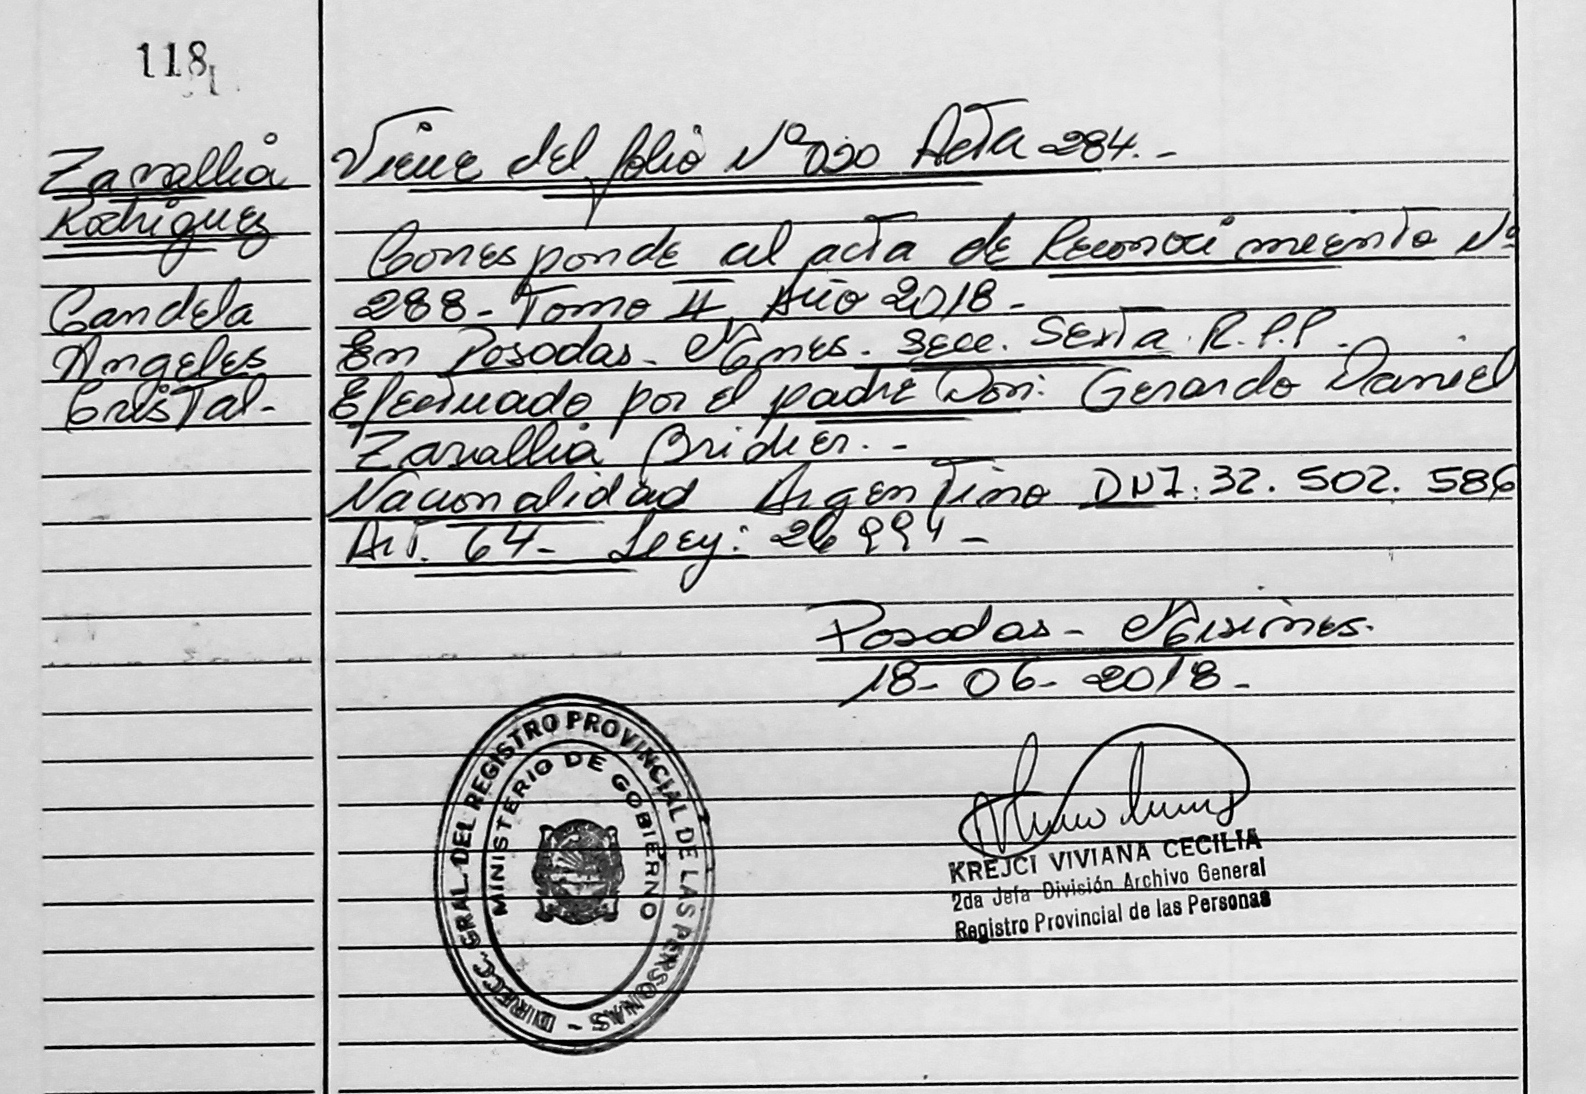 118
Zarallia
Rodriguez
Candela
Angeles
Cristal-
Viene del folio Nº 020 Acta 284.-
Corresponde al acta de Reconocimiento Nº
288- Tomo II, Año 2018-
En Posadas- Mnes. Secc. Sexta R.P.P.
Efectuado por el padre Don: Gerardo Daniel
Zarallia Bridier.-
Nacionalidad Argentino DNI: 32.502.586
Art. 64- Ley: 26994-
Posadas- Misiones.
18-06-2018-
DIRECC. GRAL. DEL REGISTRO PROVINCIAL DE LAS PERSONAS -
MINISTERIO DE GOBIERNO
KREJCI VIVIANA CECILIA
2da Jefa División Archivo General
Registro Provincial de las Personas